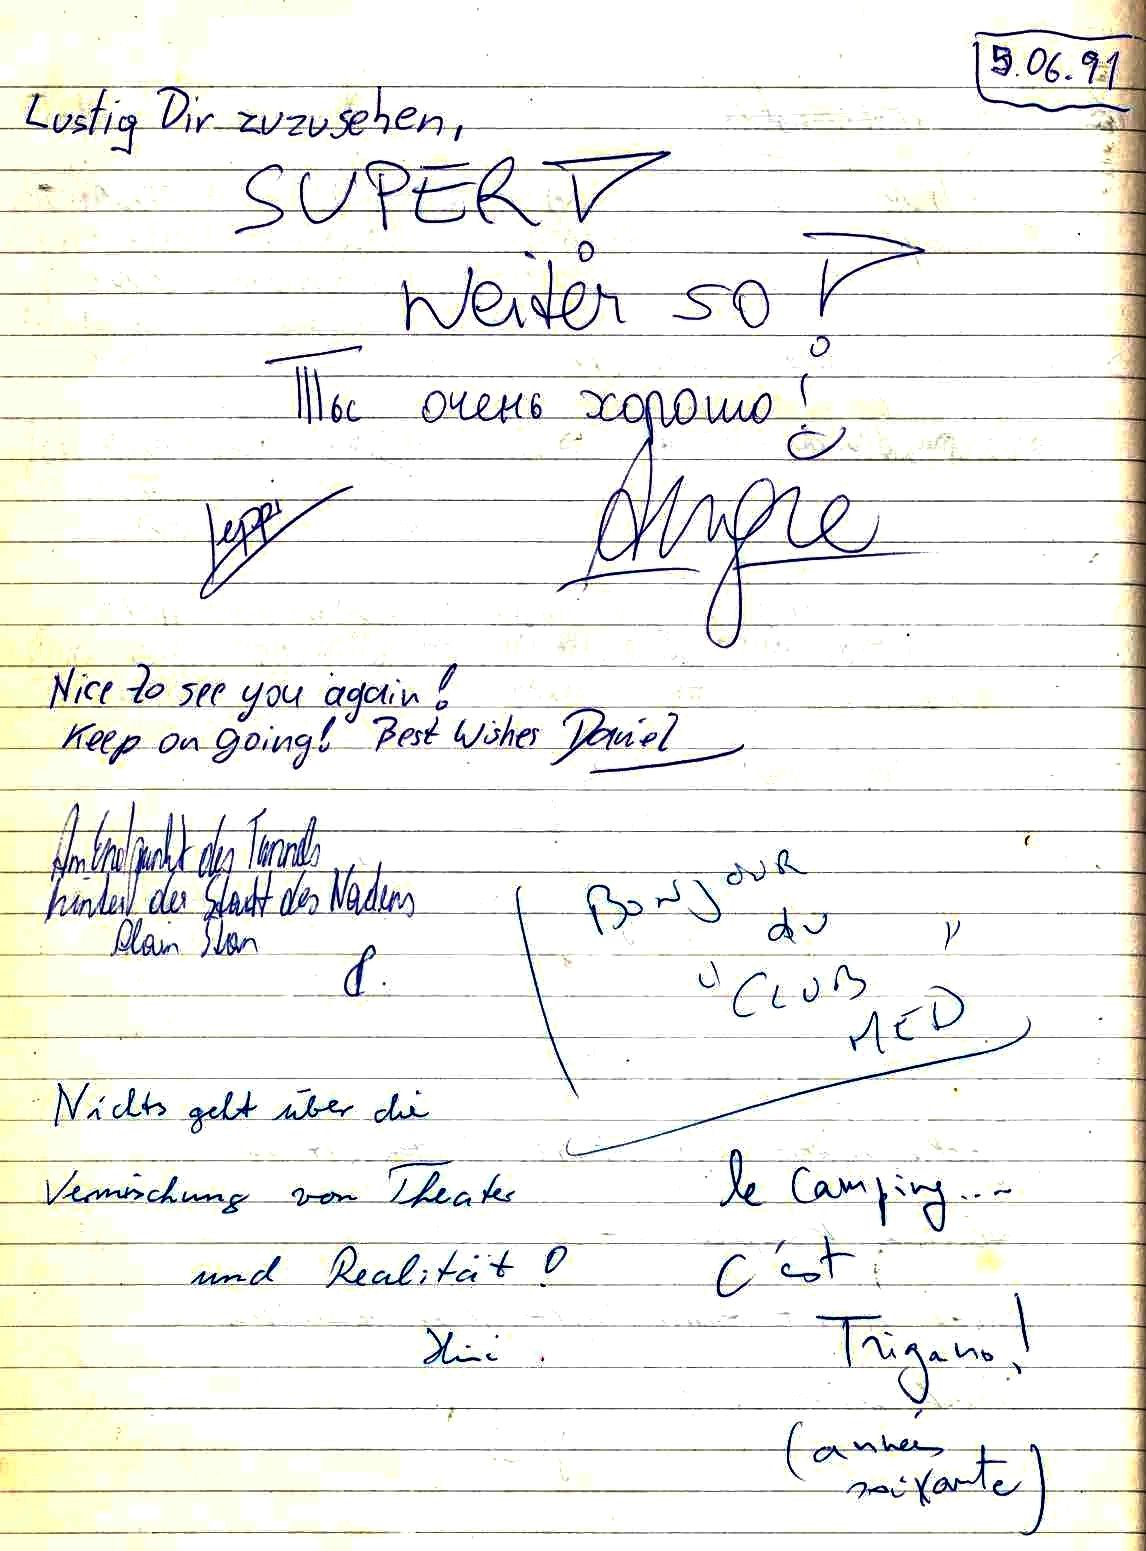 5.06.91
Lustig Dir zuzusehen,
SUPER!
Weiter so!
Ты очень хорошо!
Angie
Nice to see you again!
Keep on going! Best Wishes Daniel
Am Endpunkt des Tunnels
hinter der Stadt des
Bonjour
du
"CLUB
MED"
Nichts geht über die
Vermischung von Theater
und Realität!
le Camping...
C'est
Trigano!
(années
soixante)